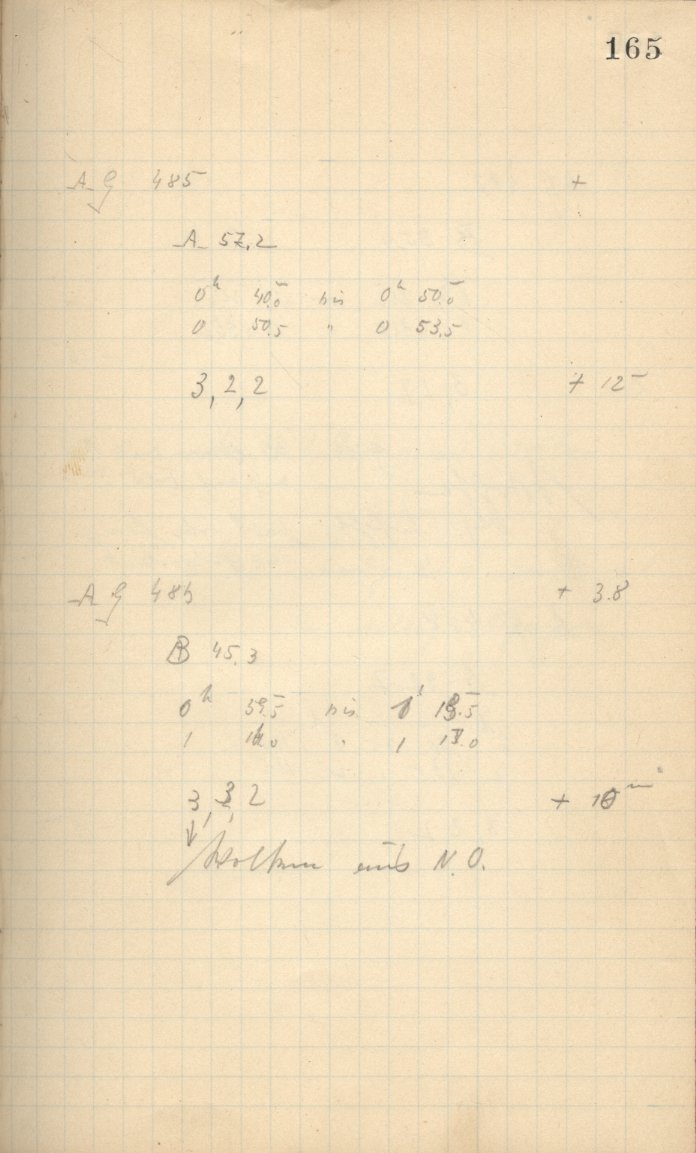 165
A G 485 +
A 57,2
0h 40.0m bis 0h 50.0m
0 50.5 " 0 53.5
3,2,2 + 12m
A G 485 + 3.8
B 45.3
0h 59.5m bis 1h
1 " 1
3,3,2 + 10m
Wolken aus N.O.